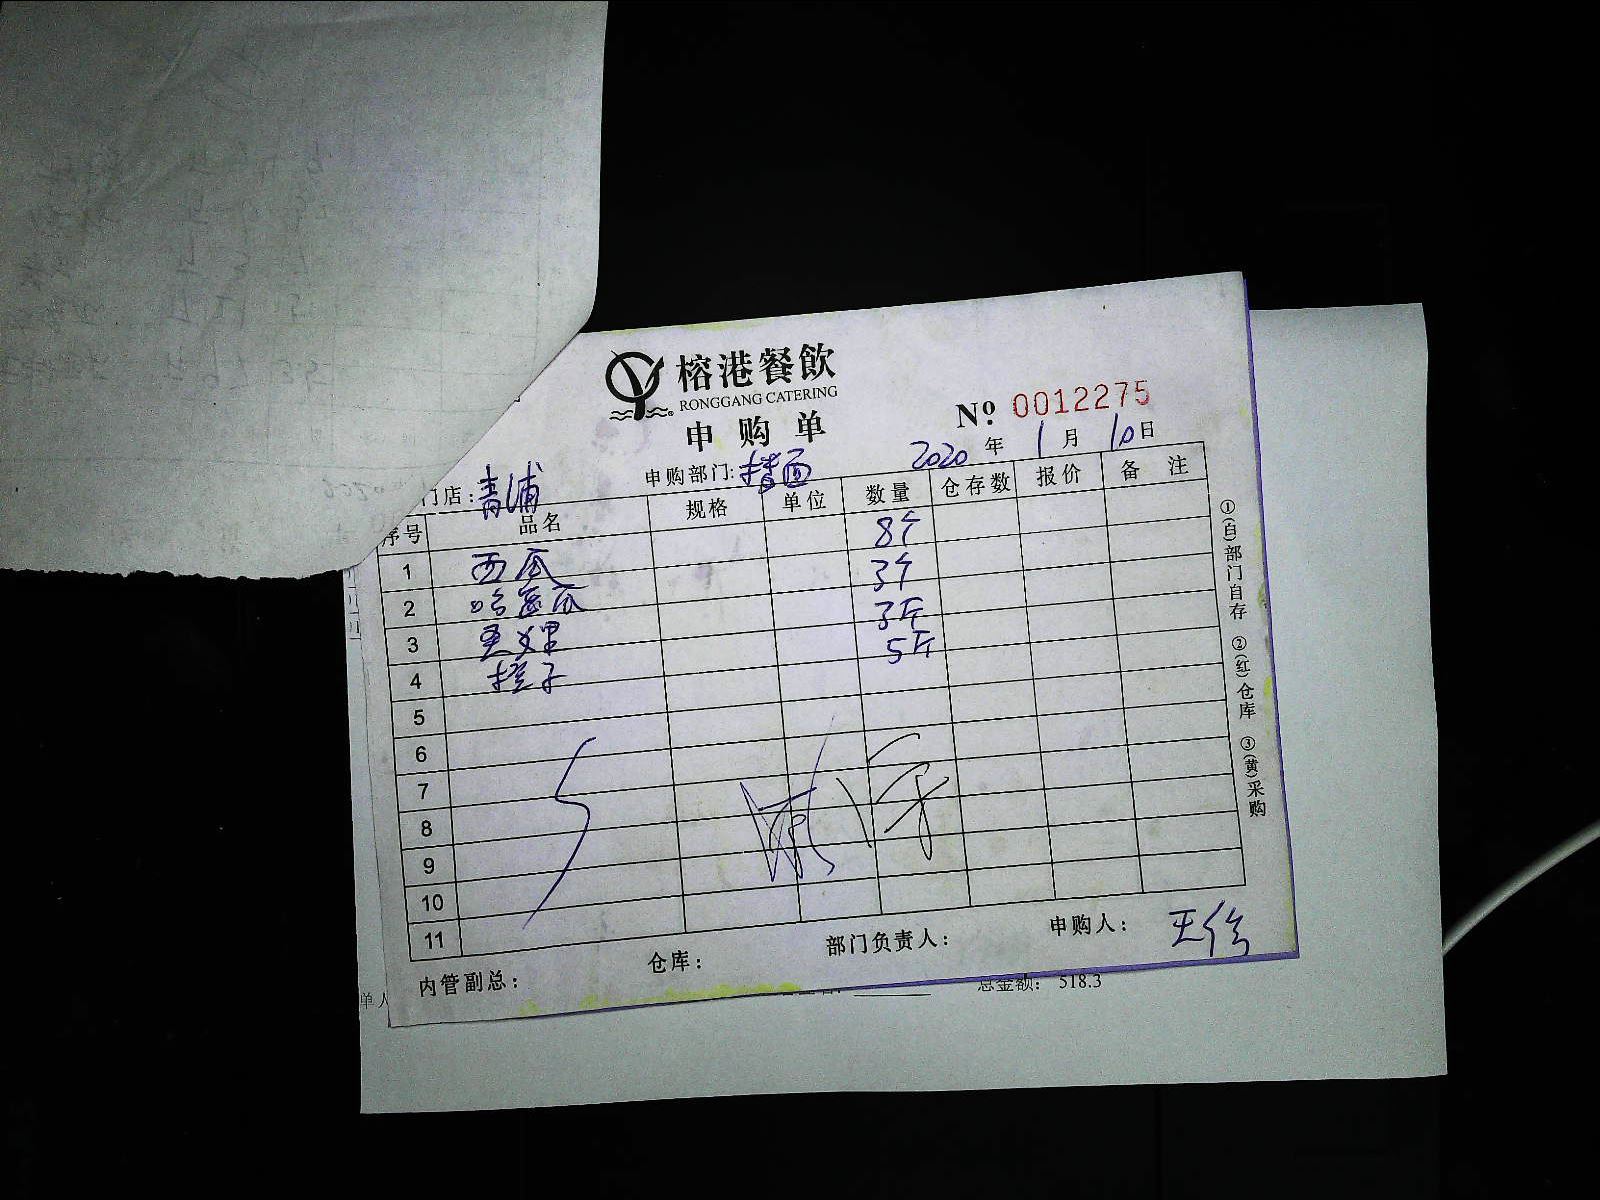 榕港餐飲
RONGGANG CATERING
申购单
Nº 0012275
门店：青浦 申购部门: 2020 年 1 月 10 日
序号 品名 规格 单位 数量 仓存数 报价 备注
1 西瓜 8个
2 哈密瓜 3个
3 3斤
4 橙子 5斤
5
6
7
8
9
10
11
内管副总： 仓库： 部门负责人： 申购人：
①(白)部门自存 ②(红)仓库 ③(黄)采购
单人
总金额： 518.3